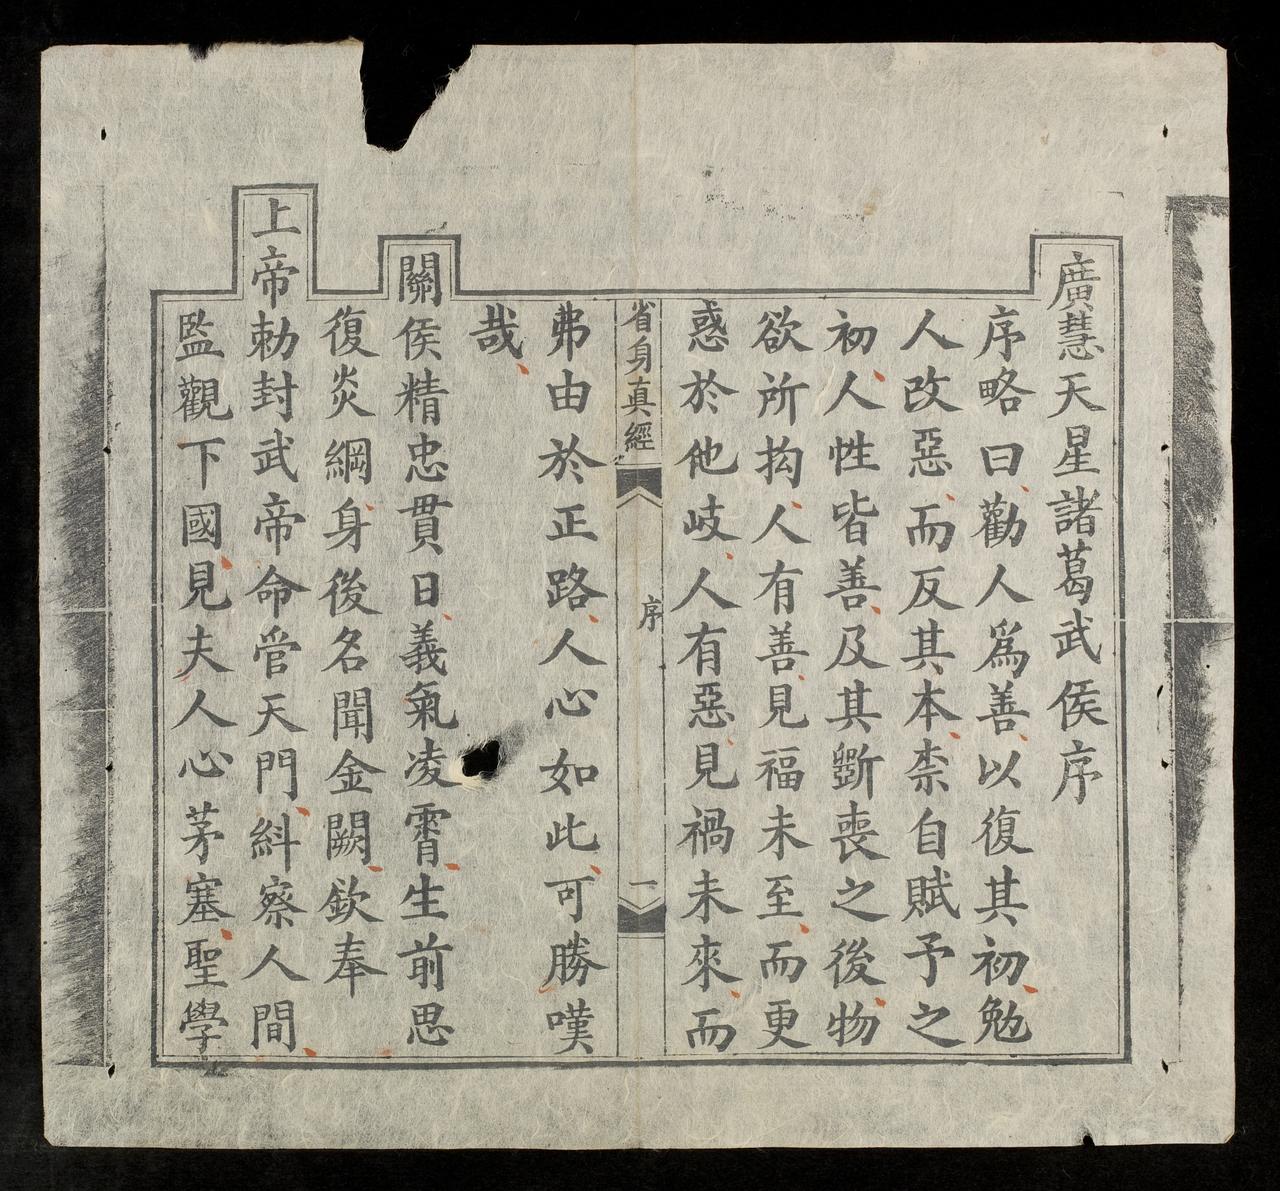 廣慧天星諸葛武侯序
序略曰勸人爲善以復其初勉
人改惡而反其本柰自賦予之
初人性皆善及其斲喪之後物
欲所拘人有善見福未至而更
惑於他岐人有惡見禍未來而
省身真經 序 一
弗由於正路人心如此可勝嘆
哉
關侯精忠貫日義氣凌霄生前思
復炎綱身後名聞金闕欽奉
上帝勅封武帝命管天門糾察人間
監觀下國見夫人心茅塞聖學